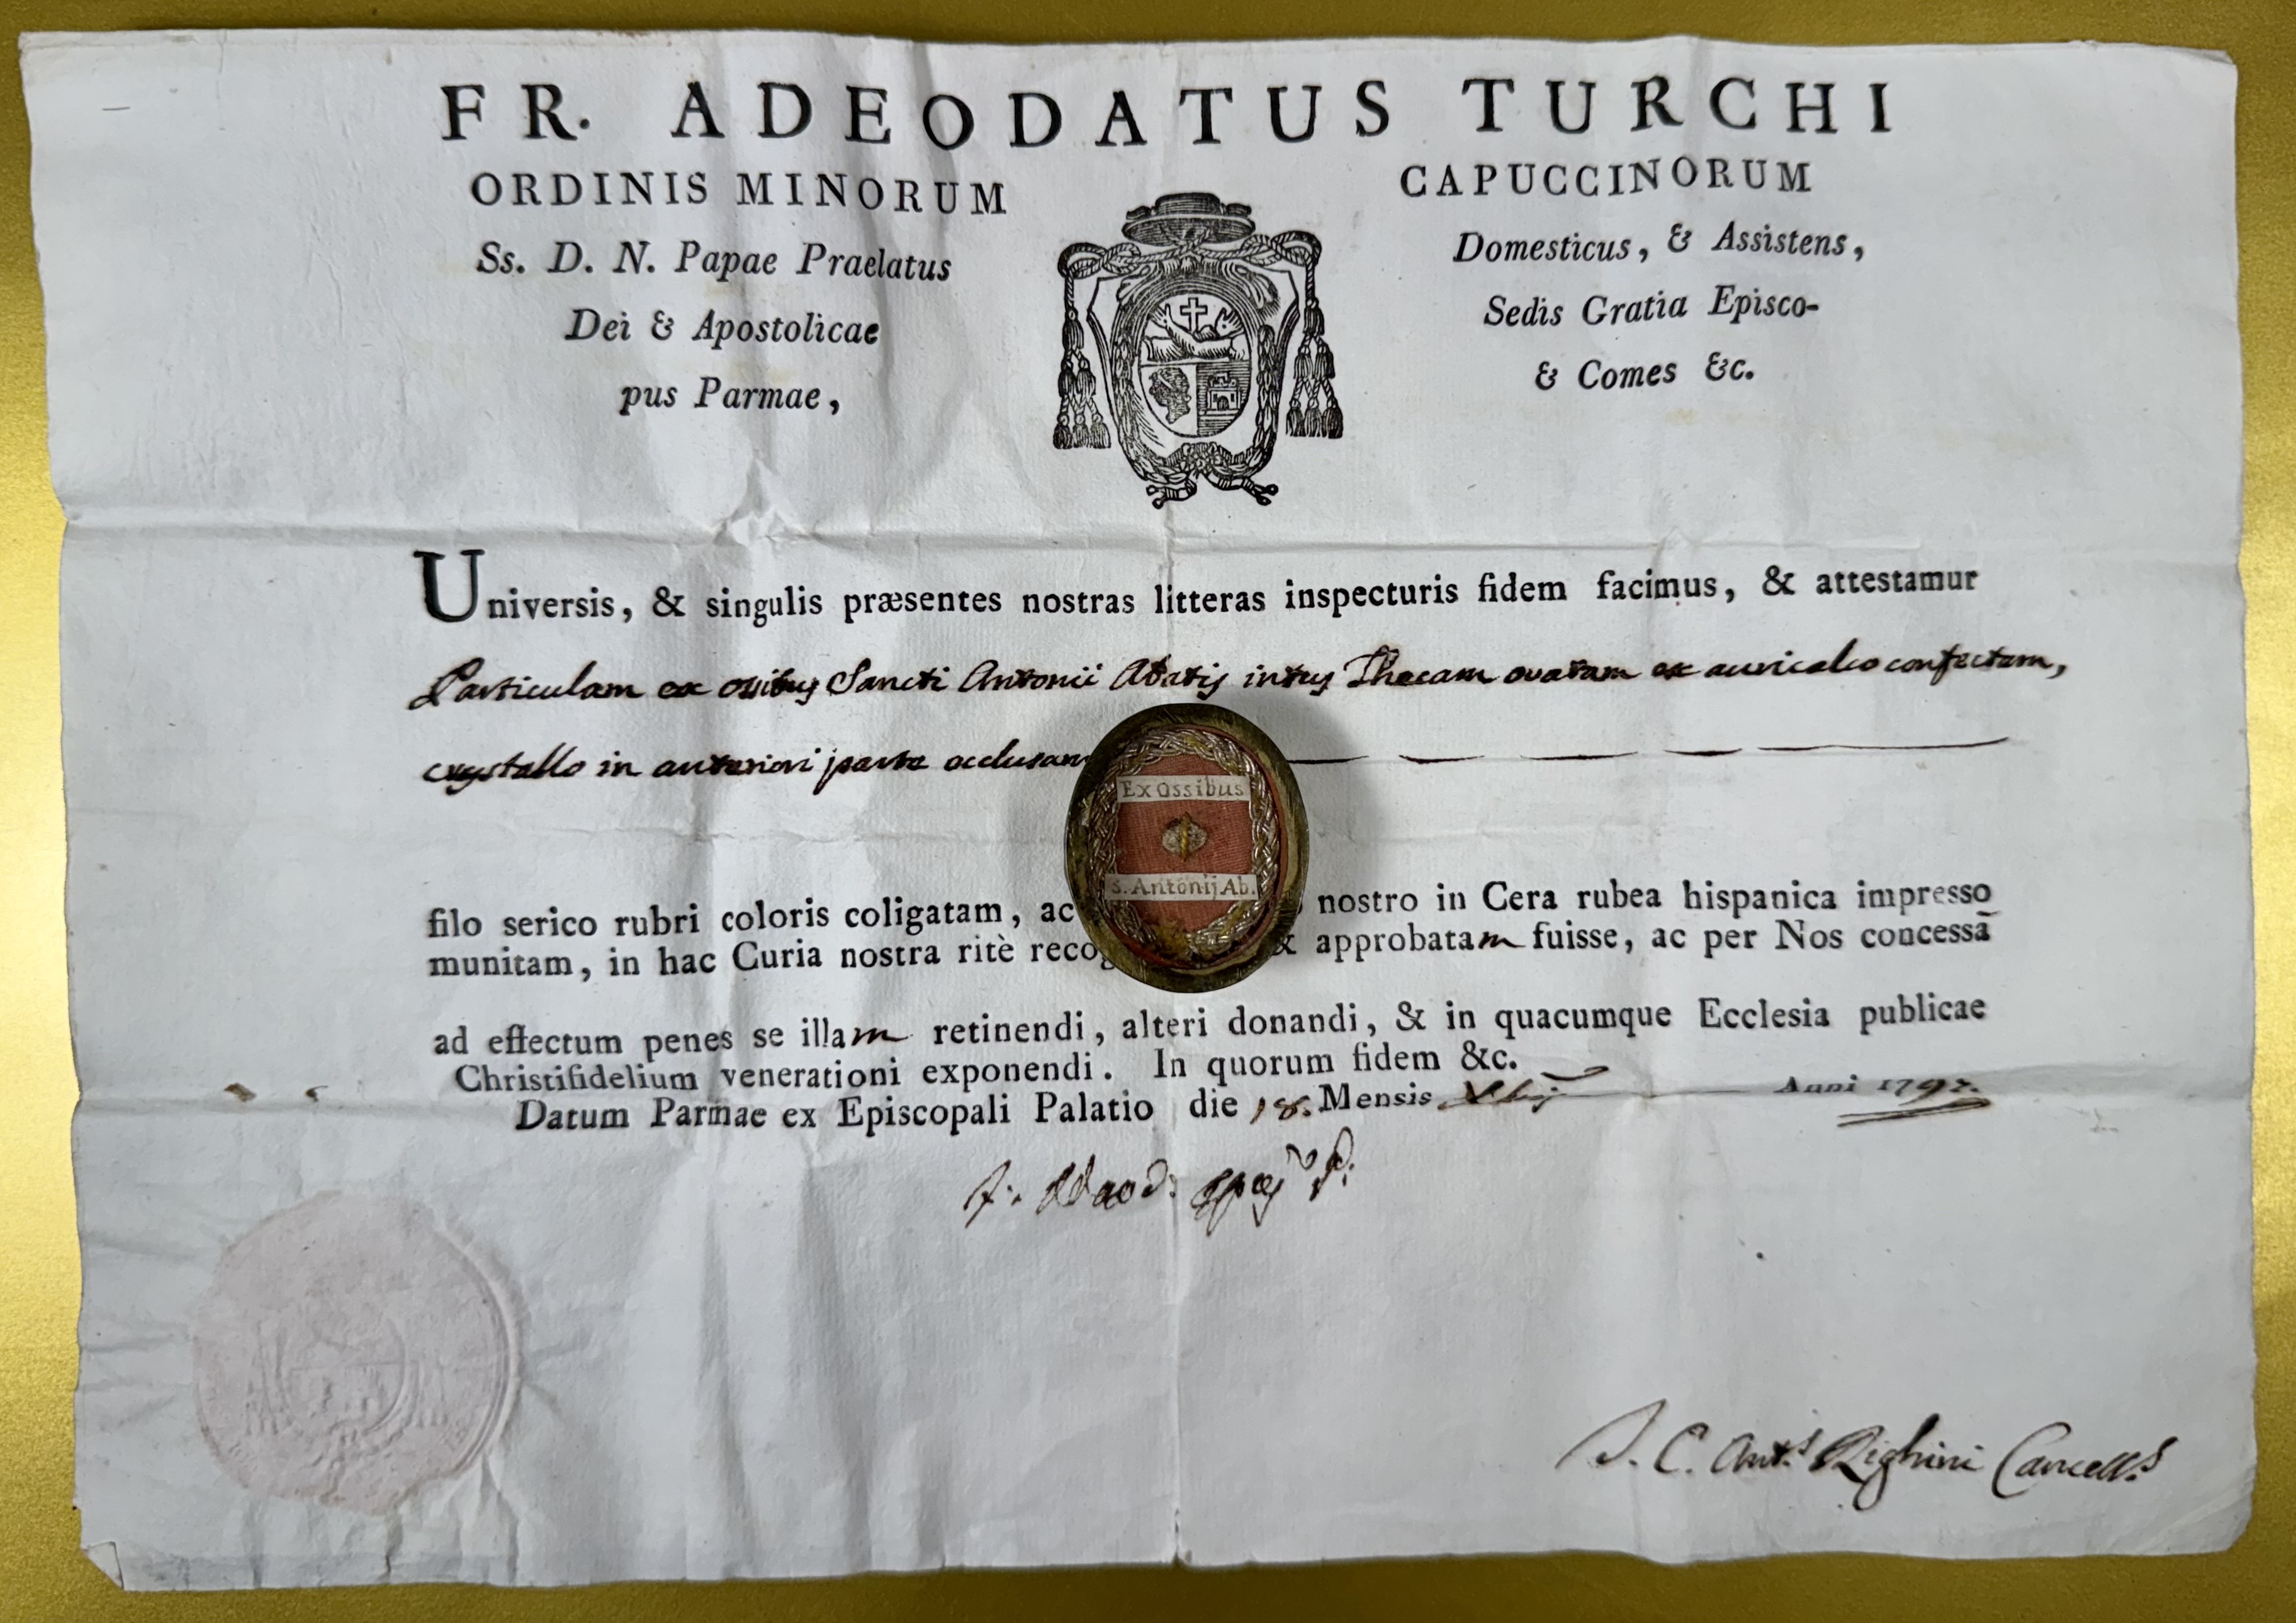 FR. ADEODATUS TURCHI
ORDINIS MINORUM CAPUCCINORUM
Ss. D. N. Papae Praelatus Domesticus, & Assistens,
Dei & Apostolicae Sedis Gratia Episco-
pus Parmae, & Comes &c.
Universis, & singulis præsentes nostras litteras inspecturis fidem facimus, & attestamur
Particulam ex ossibus Sancti Antonii Abatis intus Thecam ovatam ex auricalco confectam,
crystallo in anteriori parte occlusam
Ex Ossibus
S. Antonij Ab.
filo serico rubri coloris coligatam, ac nostro in Cera rubea hispanica impresso
munitam, in hac Curia nostra ritè & approbatam fuisse, ac per Nos concessã
ad effectum penes se illam retinendi, alteri donandi, & in quacumque Ecclesia publicae
Christifidelium venerationi exponendi. In quorum fidem &c.
Datum Parmae ex Episcopali Palatio die 18. Mensis Anni
f. Adeod.
Righini Cancell.s